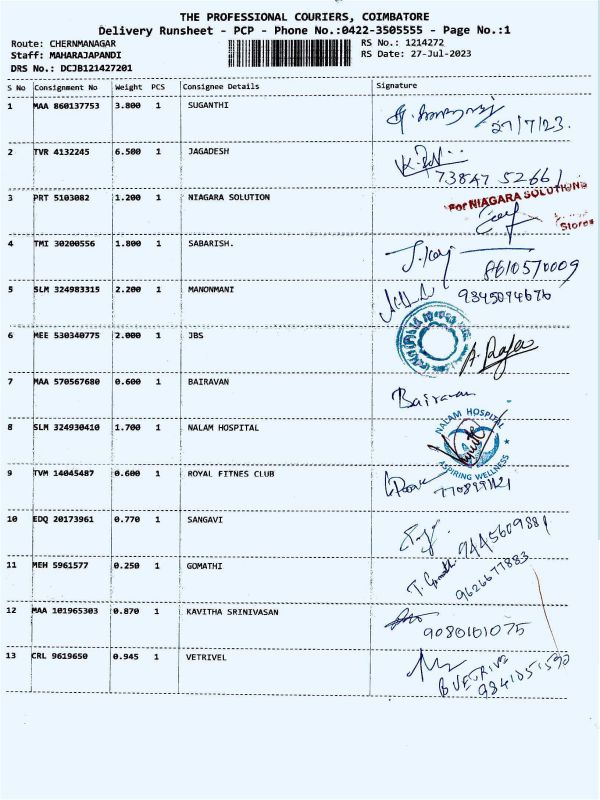 THE PROFESSIONAL COURIERS, COIMBATORE
Delivery Runsheet - PCP - Phone No.:0422-3505555 - Page No.:1
Route: CHERNMANAGAR RS No.: 1214272
Staff: MAHARAJAPANDI RS Date: 27-Jul-2023
DRS No.: DCJB121427201
S No Consignment No Weight PCS Consignee Details Signature
1 MAA 860137753 3.800 1 SUGANTHI
27/7/23.
2 TVR 4132245 6.500 1 JAGADESH
73847 52661
3 PRT 5103082 1.200 1 NIAGARA SOLUTION For NIAGARA SOLUTIONS
Stores
4 TMI 30200556 1.800 1 SABARISH.
8610570009
5 SLM 324983315 2.200 1 MANONMANI 9845094676
6 MEE 530340775 2.000 1 JBS
7 MAA 570567680 0.600 1 BAIRAVAN Bairavan
8 SLM 324930410 1.700 1 NALAM HOSPITAL NALAM HOSPITAL
ASPIRING WELLNESS
9 TVM 14045487 0.600 1 ROYAL FITNES CLUB
10 EDQ 20173961 0.770 1 SANGAVI 9445609881
11 MEH 5961577 0.250 1 GOMATHI T. Gomathi 9626677883
12 MAA 101965303 0.870 1 KAVITHA SRINIVASAN
9080101075
13 CRL 9619650 0.945 1 VETRIVEL
9841051590